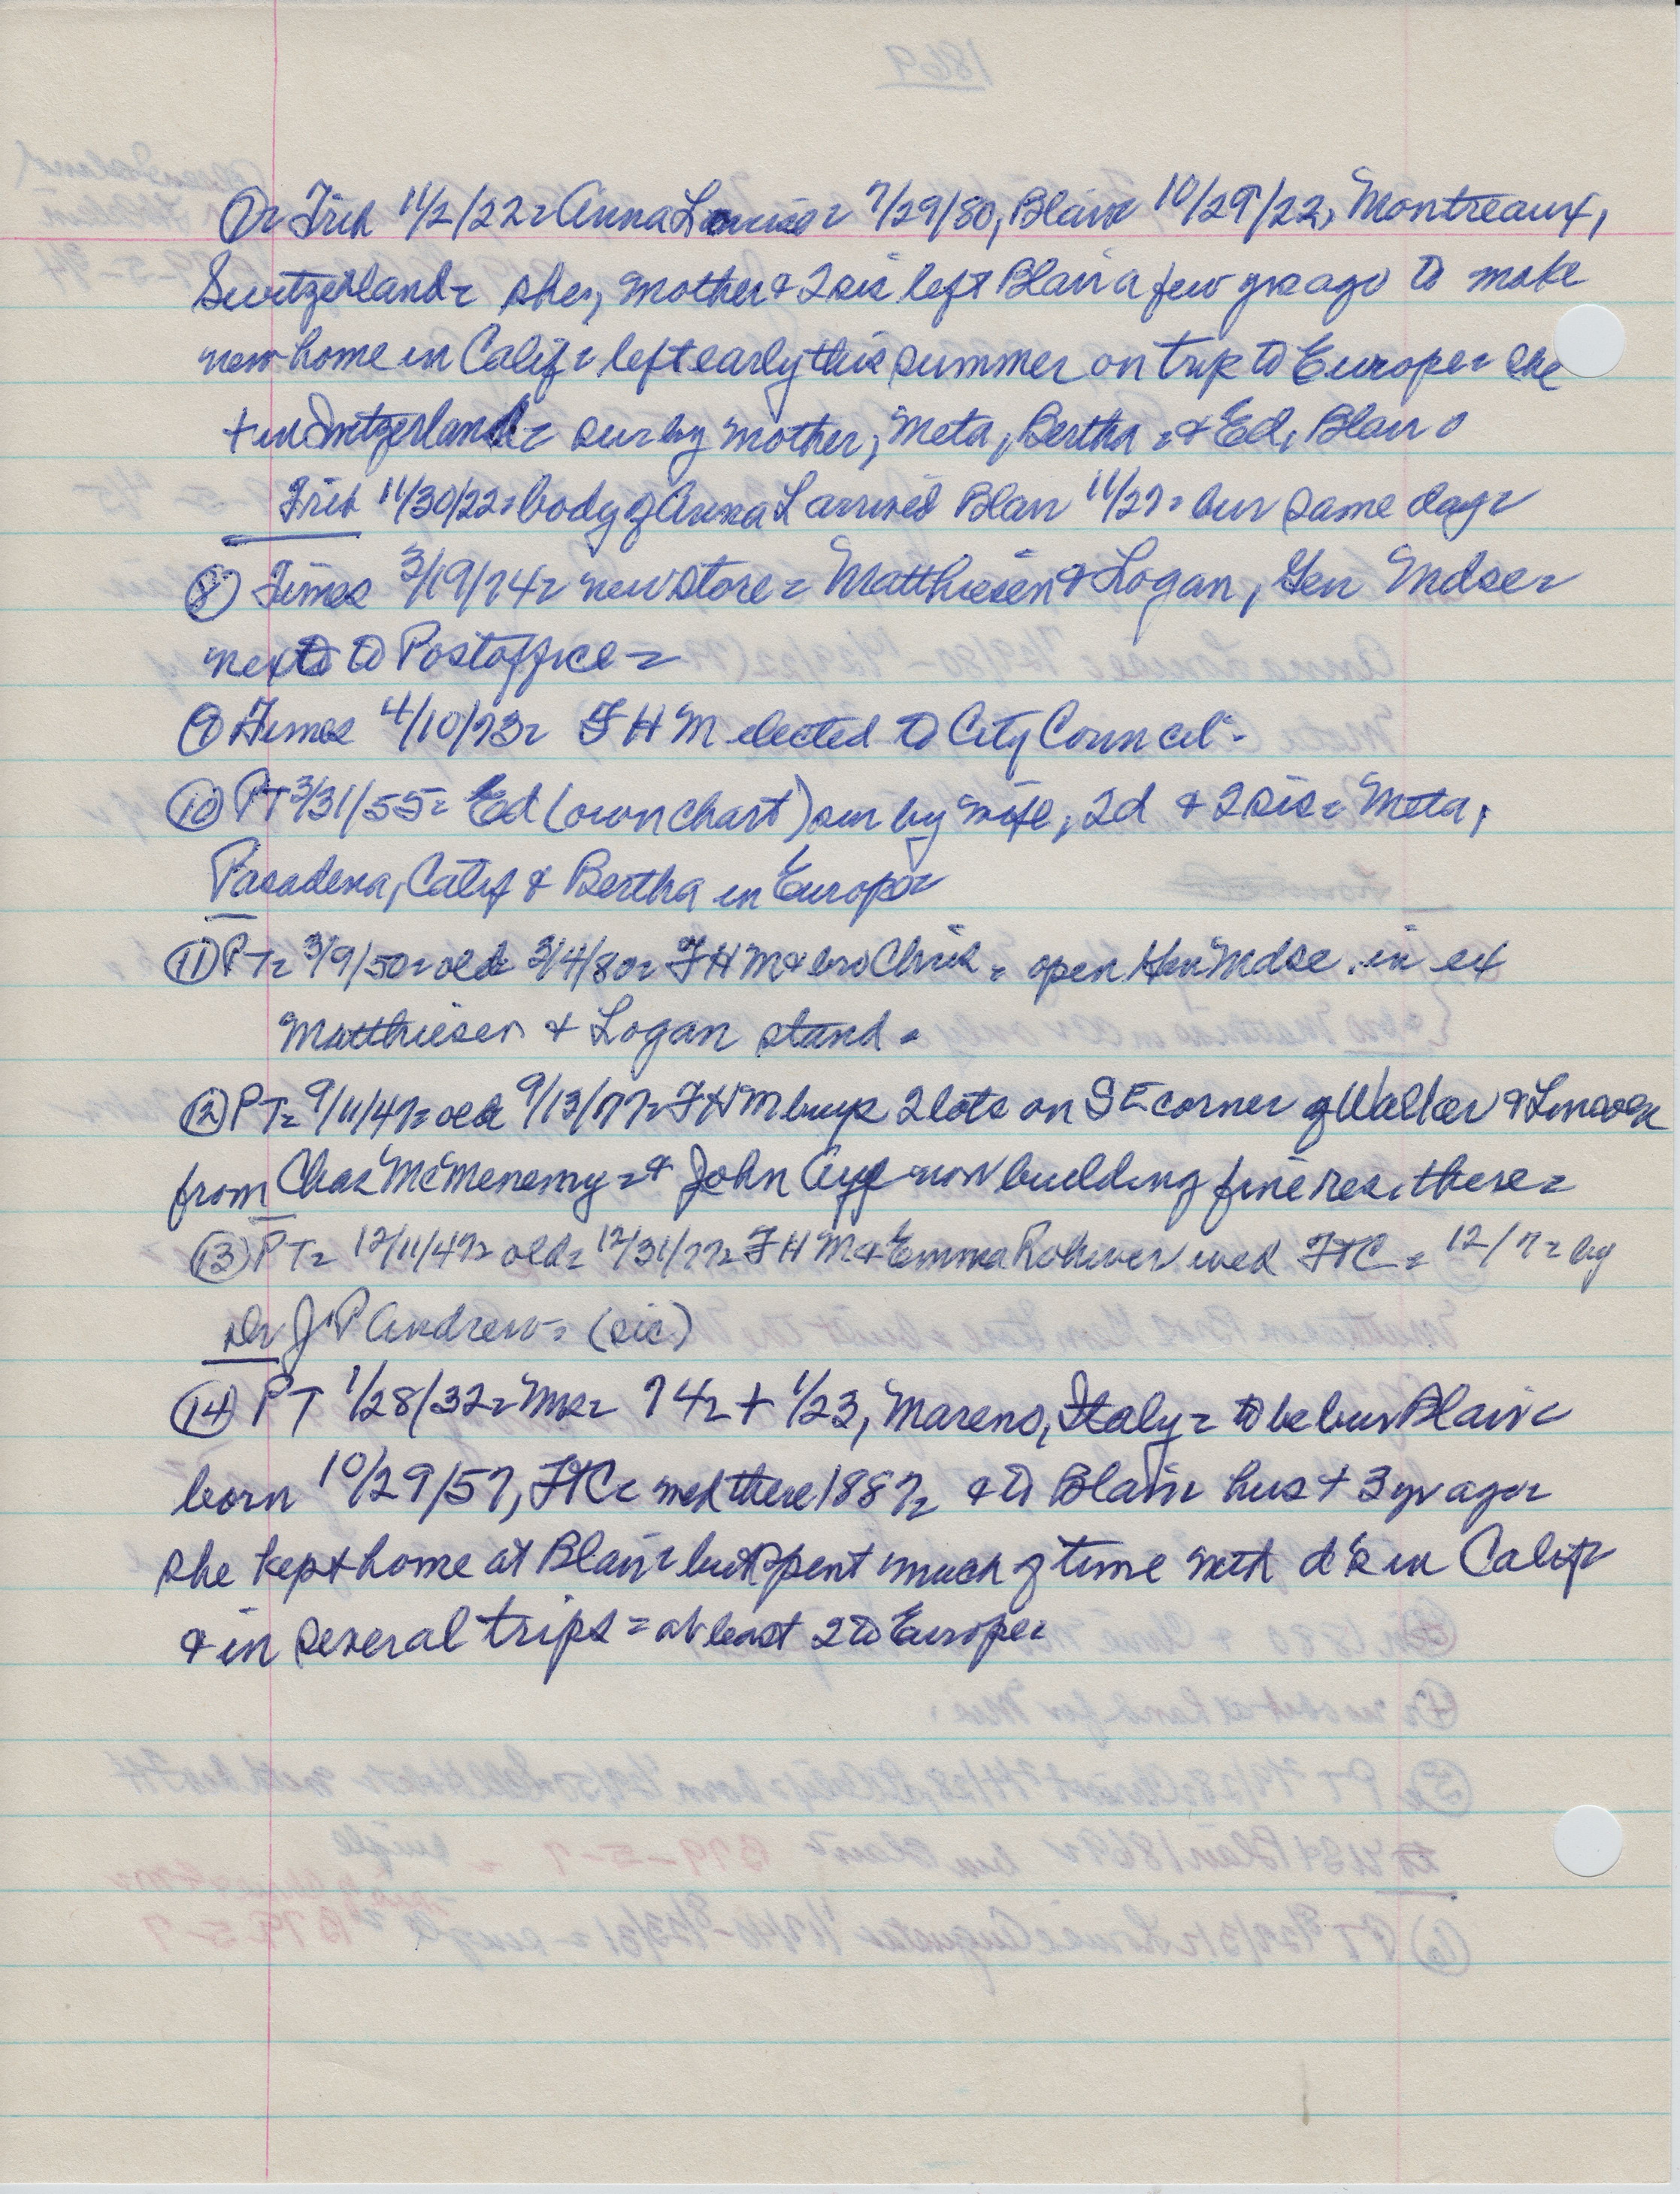 ⑦ Trib 11/2/22 = Anna Louise = 7/29/80, Blair = 10/29/22, Montreaux,
Switzerland = she, mother & 2 sis left Blair a few yrs ago to make
new home in Calif = left early this summer on trip to Europe = she
+ in Switzerland = sur by mother, Meta, Bertha, & Ed, Blair
Trib 11/30/22 = body of Anna L arrived Blair 11/27 = bur same day =
⑧ Times 3/19/74 = new store = Matthiesen & Logan, Gen Mdse =
next to Postoffice =
⑨ Times 4/10/73 = F H M elected to City Council -
⑩ PT 3/31/55 = Ed (own chart) sur by wife, 2d & 2 sis = Meta,
Pasadena, Calif & Bertha in Europe =
⑪ PT = 3/9/50 = old 3/4/80 = F H M & bro Chris = open Gen Mdse in ex
Matthiesen & Logan stand =
⑫ PT = 9/11/47 = old 9/13/77 = F H M buys 2 lots on SE corner of Walker & Lincoln
from Chas McMenemy = & John Aye now building fine res. there =
⑬ PT = 12/11/47 = old = 12/31/77 = F H M & Emma Rohwer wed FtC = 12/7 = by
Dr J P Andrew = (sic)
⑭ PT 1/28/32 = Mrs = 74 = + 1/23, Mareno, Italy = to be bur Blair =
born 10/29/57, FtC = med there 1887 = & to Blair = hus + 3 yr ago =
she kept home at Blair = but spent much of time with d's in Calif =
& in several trips = at least 2 to Europe =